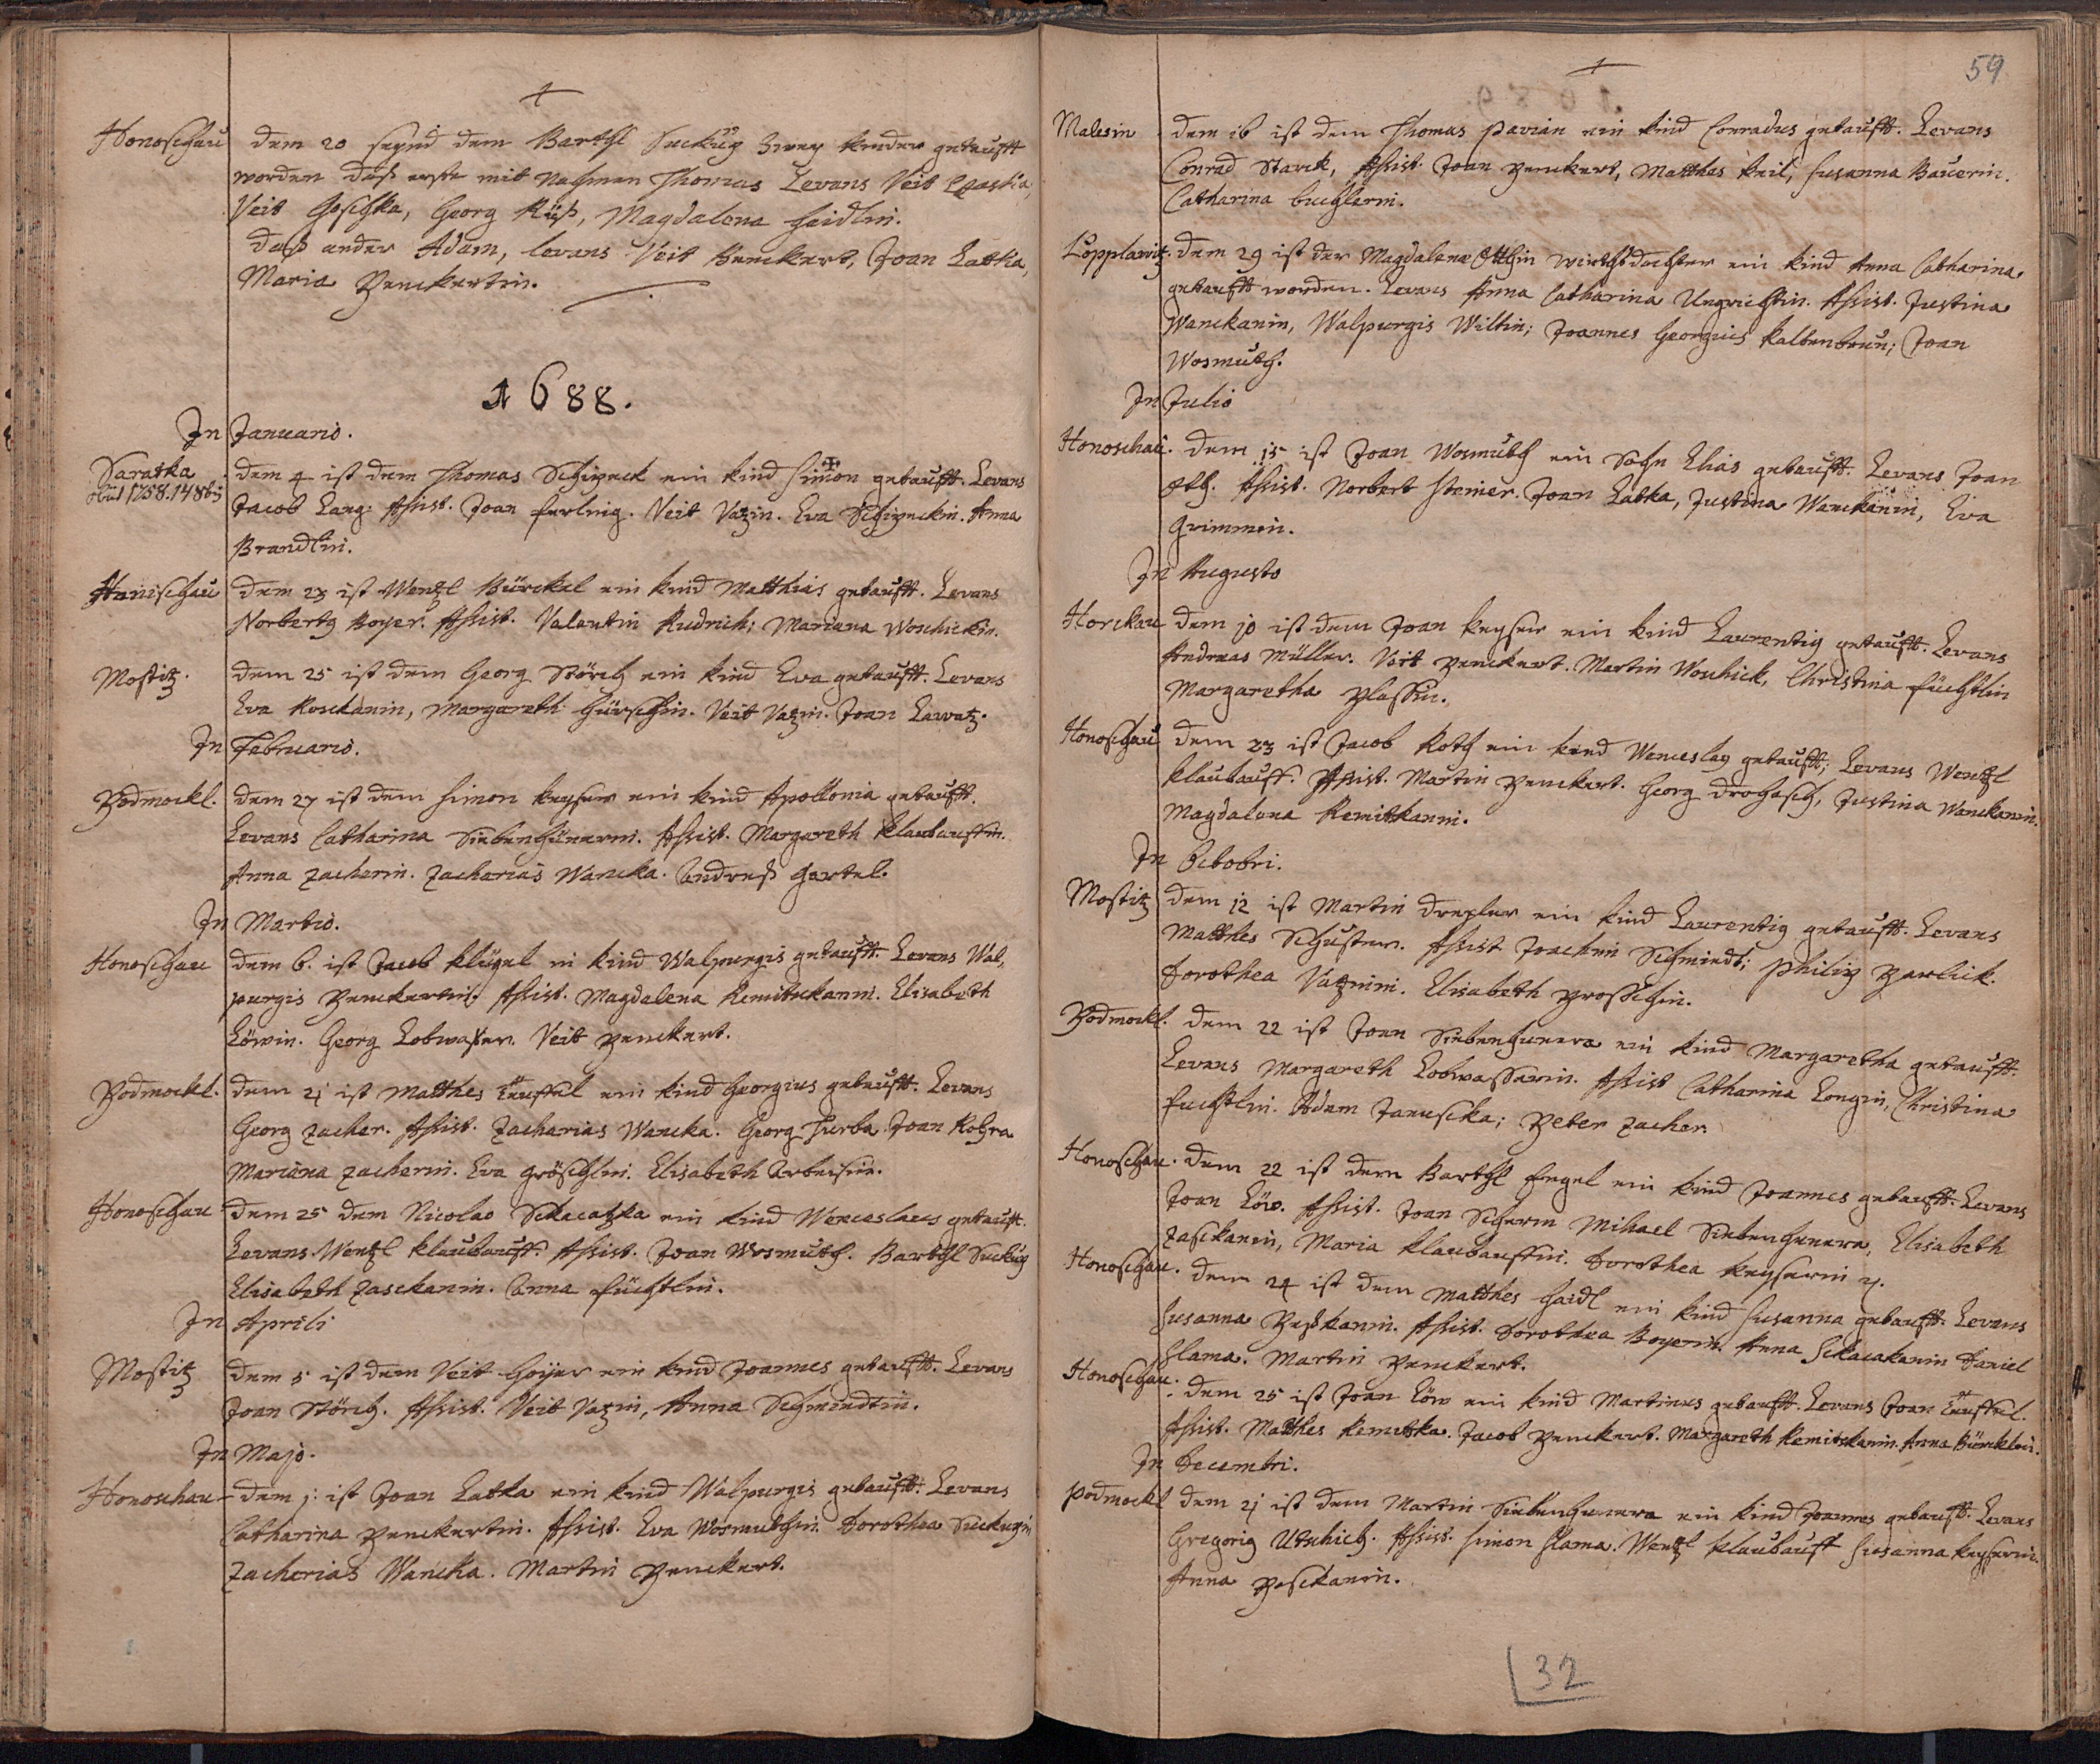 Honoschau dem 20 seynd dem Barthl Suckúy zwey kinder getaufft
worden daß erste mit Nahmen Thomas Levans Veit
Veit Goschka, Georg Küß, Magdalena haidlin.
daß ander Adam, levans Veit Benckert, Joan Latka,
Maria Penckertin.
1688.
In Januario.
Saratka dem 4 ist dem Thomas Schipeck ein kind Simon getaufft. Levans
obiit 1758. 14 8bris Jacob Lang. Assist. Joan ferling. Veit Vatzin. Eva Schipeckin. Anna
Brandlin.
Hanischau dem 23 ist Wentzl Bürckel ein kind Matthias getaufft. Levans
Norbertg Boyer. Assist. Valentin Rudrich; Mariana Woschickin.
Mostitz. dem 25 ist dem Georg Störch ein kind Eva getaufft. Levans
Eva Rosckanin, Margareth Gürschin. Veit Vatzin. Joan Lawatz.
In Februario.
Podmockl. dem 27 ist dem Simon keyser ein kind Apollonia getaufft.
Levans Catharina Siebenhünerin. Assist. Margareth klaubauffin.
Anna zacherin. Zacharias Wancka. Andreß Gartel.
In Martio.
Honoschau dem 6. ist Jacob klügel ein kind Walpurgis getaufft. Levans Wal,
purgis Penckertin. Assist. Magdalena Remitzkanin. Elisabeth
Löwin. Georg Lobwasser. Veit Penckert.
Podmockl. dem 21 ist Matthes Teuffel ein kind Georgius getaufft. Levans
Georg Zacher. Assist. Zacharias Wancka. Georg Hurba. Joan Kohra
Mariana Zacherin. Eva Gröschlin. Elisabeth Arbeisin.
Honoschau dem 25 dem Nicolao Skacatzka ein kind Wenceslaus getaufft.
Levans Wentzl klaubauff. Assist. Joan Wosmuth. Barthl Suckúy
Elisabeth Zasckanin. Anna füchstlin.
In Aprili
Mostitz dem 5 ist dem Veit Goyer ein kind Joannes getaufft. Levans
Joan Störch. Assist. Veit Vatzin, Anna Schmindtin.
In Majo.
Honoschau dem 1. ist Joan Latka ein kind Walpurgis getaufft. Levans
Catharina Penckertin. Assist. Eva Wosmuthin. Dorothea Suckuyin
Zacherias Wancka. Martin Penckert.
59
Malesin dem 16 ist dem Thomas Pavian ein kind Conradus getaufft. Levans
Conrad Starck, Assist. Joan Penckert, Matthes keil, Susanna Bauerin.
Catharina buchlerin.
Lopplawitz. dem 29 ist der Magdalena Otthin wirthsdochter ein kind Anna Catharina
getaufft worden. Levans Anna Catharina Ungrichtin. Assist. Justina
Wanckanin, Walpurgis Wiltin; Joannes Georgius kaltenbrun; Joan
Wosmuth.
In Julio
Honoschau. dem 15 ist Joan Wosmuth ein Sohn Elias getaufft. Levans Joan
Oth. Assist. Norbert Steiner. Joan Latka, Justina Wanckanin, Eva
Grimmin.
In Augusto
Horckau dem 10 ist dem Joan keyser ein kind Laurentig getaufft. Levans
Andreas Müller. Veit Penckert. Martin Woschick, Christina füchstlin
Margaretha Plassin.
Honoschau dem 23 ist Jacob Roth ein kind Wenceslag getaufft; Levans Wentzl
klaubauff. Assist. Martin Penckert. Georg Drohasch, Justina Wanckanin.
Magdalena Remitkanin.
In Octobri.
Mostitz dem 12 ist Martin Drexler ein kind Laurentig getaufft. Levans
Matthes Schuster. Assist Joachim Schmiedt; Philip Parlick.
Dorothea Vatzinin. Elisabeth Proschin.
Podmockl. dem 22 ist Joan Siebenhunera ein kind Margaretha getaufft.
Levans Margareth Lobwasserin. Assist Catharina Longin, Christina
fuchstlin. Adam Januscka; Peter Zacher.
Honoschau. dem 22 ist dem Barthl Engel ein kind Joannes getaufft. Levans
Joan Löw. Assist. Joan Scherm Mihael Siebenhunera, Elisabeth
Zasckanin, Maria klaubauffin. Dorothea keyserin
Honoschau. dem 24 ist dem Matthes haidl ein kind Susanna getaufft. Levans
Susanna Peßkanin. Assist. Dorothea Boyerin Anna Skacakanin Daniel
Slama. Martin Penckert.
Honoschau. dem 25 ist Joan Löw ein kind Martinus getaufft. Levans Joan Teuffel.
Assist. Matthes Remitzka. Jacob Penckert. Margareth Remitzkanin. Anna Bürcklin.
In Decembri.
Podmockl dem 21 ist dem Martin Siebenhunera ein kind Joannes getaufft. Levans
Gregorig Utschich. Assist. Simon Slama. Wentzl klaubauff Susanna keyserin.
Anna Pesckanin.
32